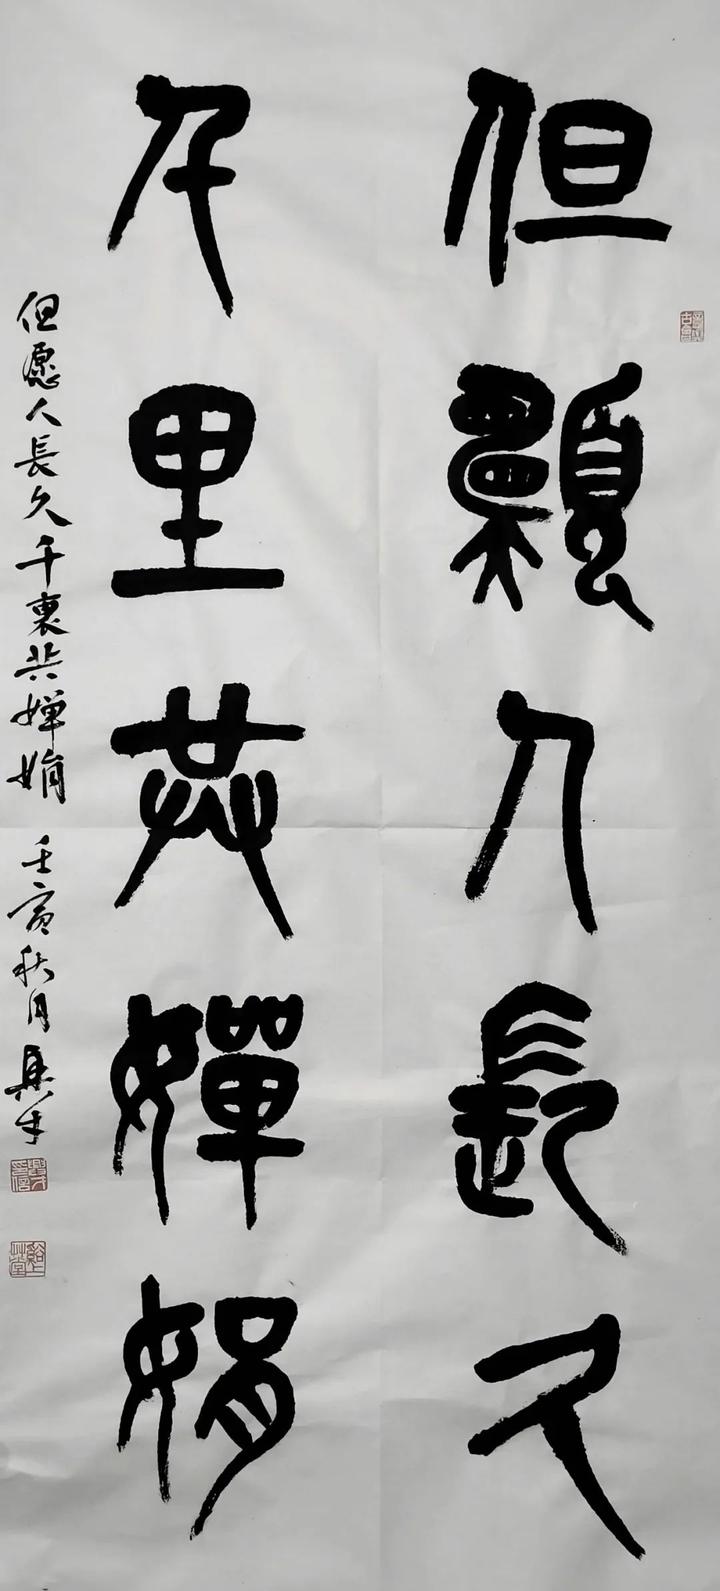 但願人長久
千里共嬋娟
但愿人長久千裏共嬋娟 壬寅秋月